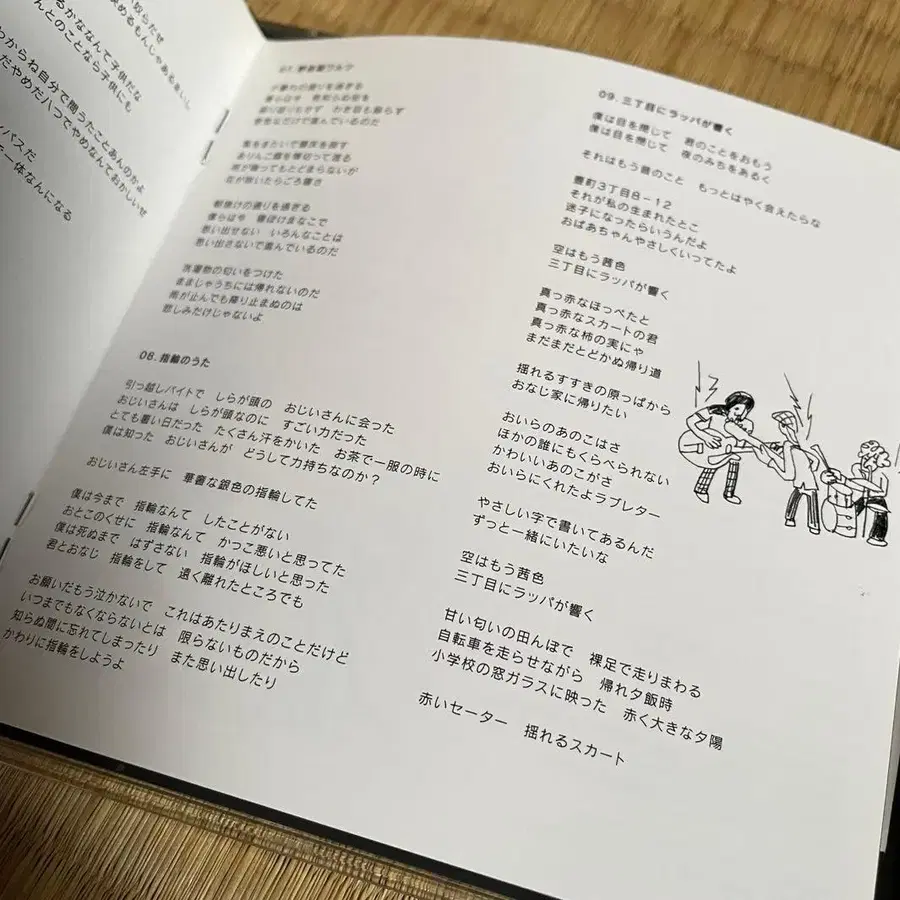 取らだせ
決めるもんじゃあるまいし
るかななんて子供だな
んとのことなら子供にも
わからね自分で問うたことあんのかよ
だやめだ八つでやめなんておかしいぜ
パスだ
と一体なんになる
通りを過ぎる
湿っているのだ
坂を探す
踏切って渡る
雨が降ってもとどまらないが
左が開いたらごろ寝さ
通りを過ぎる
僕らはや 寝ぼけまなこで
思い出せない いろんなことは
思い出さないで進んでいるのだ
洗濯物の匂いをつけた
ままじゃうちには帰れないのだ
雨が止んでも降り止まぬのは
悲しみだけじゃないよ
08. 指輪のうた
引っ越しバイトで しらが頭の おじいさんに会った
おじいさんは しらが頭なのに すごい力だった
とても暑い日だった たくさん汗をかいた お茶で一服の時に
僕は知った おじいさんが どうして力持ちなのか?
おじいさん左手に 華奢な銀色の指輪してた
僕は今まで 指輪なんて したことがない
おとこのくせに 指輪なんて かっこ悪いと思ってた
僕は死ぬまで はずさない 指輪がほしいと思った
君とおなじ 指輪をして 遠く離れたところでも
お願いだもう泣かないで これはあたりまえのことだけど
いつまでもなくならないとは 限らないものだから
知らぬ間に忘れてしまったり また思い出したり
かわりに指輪をしようよ
09. 三丁目にラッパが響く
僕は目を閉じて 君のことをおもう
僕は目を閉じて 夜のみちをあるく
それはもう君のこと もっとはやく会えたらな
豊町3丁目8-12
それが私の生まれたとこ
迷子になったらいうんだよ
おばあちゃんやさしくいってたよ
空はもう茜色
三丁目にラッパが響く
真っ赤なほっぺたと
真っ赤なスカートの君
真っ赤な柿の実にゃ
まだまだとどかぬ帰り道
揺れるすすきの原っぱから
おなじ家に帰りたい
おいらのあのこはさ
ほかの誰にもくらべられない
かわいいあのこがさ
おいらにくれたよラブレター
やさしい字で書いてあるんだ
ずっと一緒にいたいな
空はもう茜色
三丁目にラッパが響く
甘い匂いの田んぼで 裸足で走りまわる
自転車を走らせながら 帰れ夕飯時
小学校の窓ガラスに映った 赤く大きな夕陽
赤いセーター 揺れるスカート